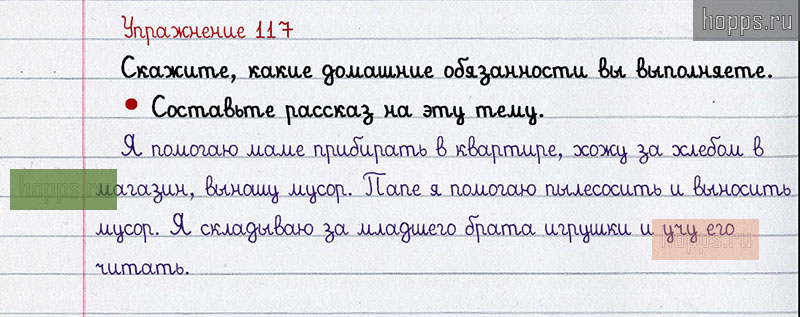 hopps.ru
Упражнение 117
Скажите, какие домашние обязанности вы выполняете.
• Составьте рассказ на эту тему.
Я помогаю маме прибирать в квартире, хожу за хлебом в
магазин, вынашу мусор. Папе я помогаю пылесосить и выносить
мусор. Я складываю за младшего брата игрушки и учу его
читать.
hopps.ru
hopps.ru